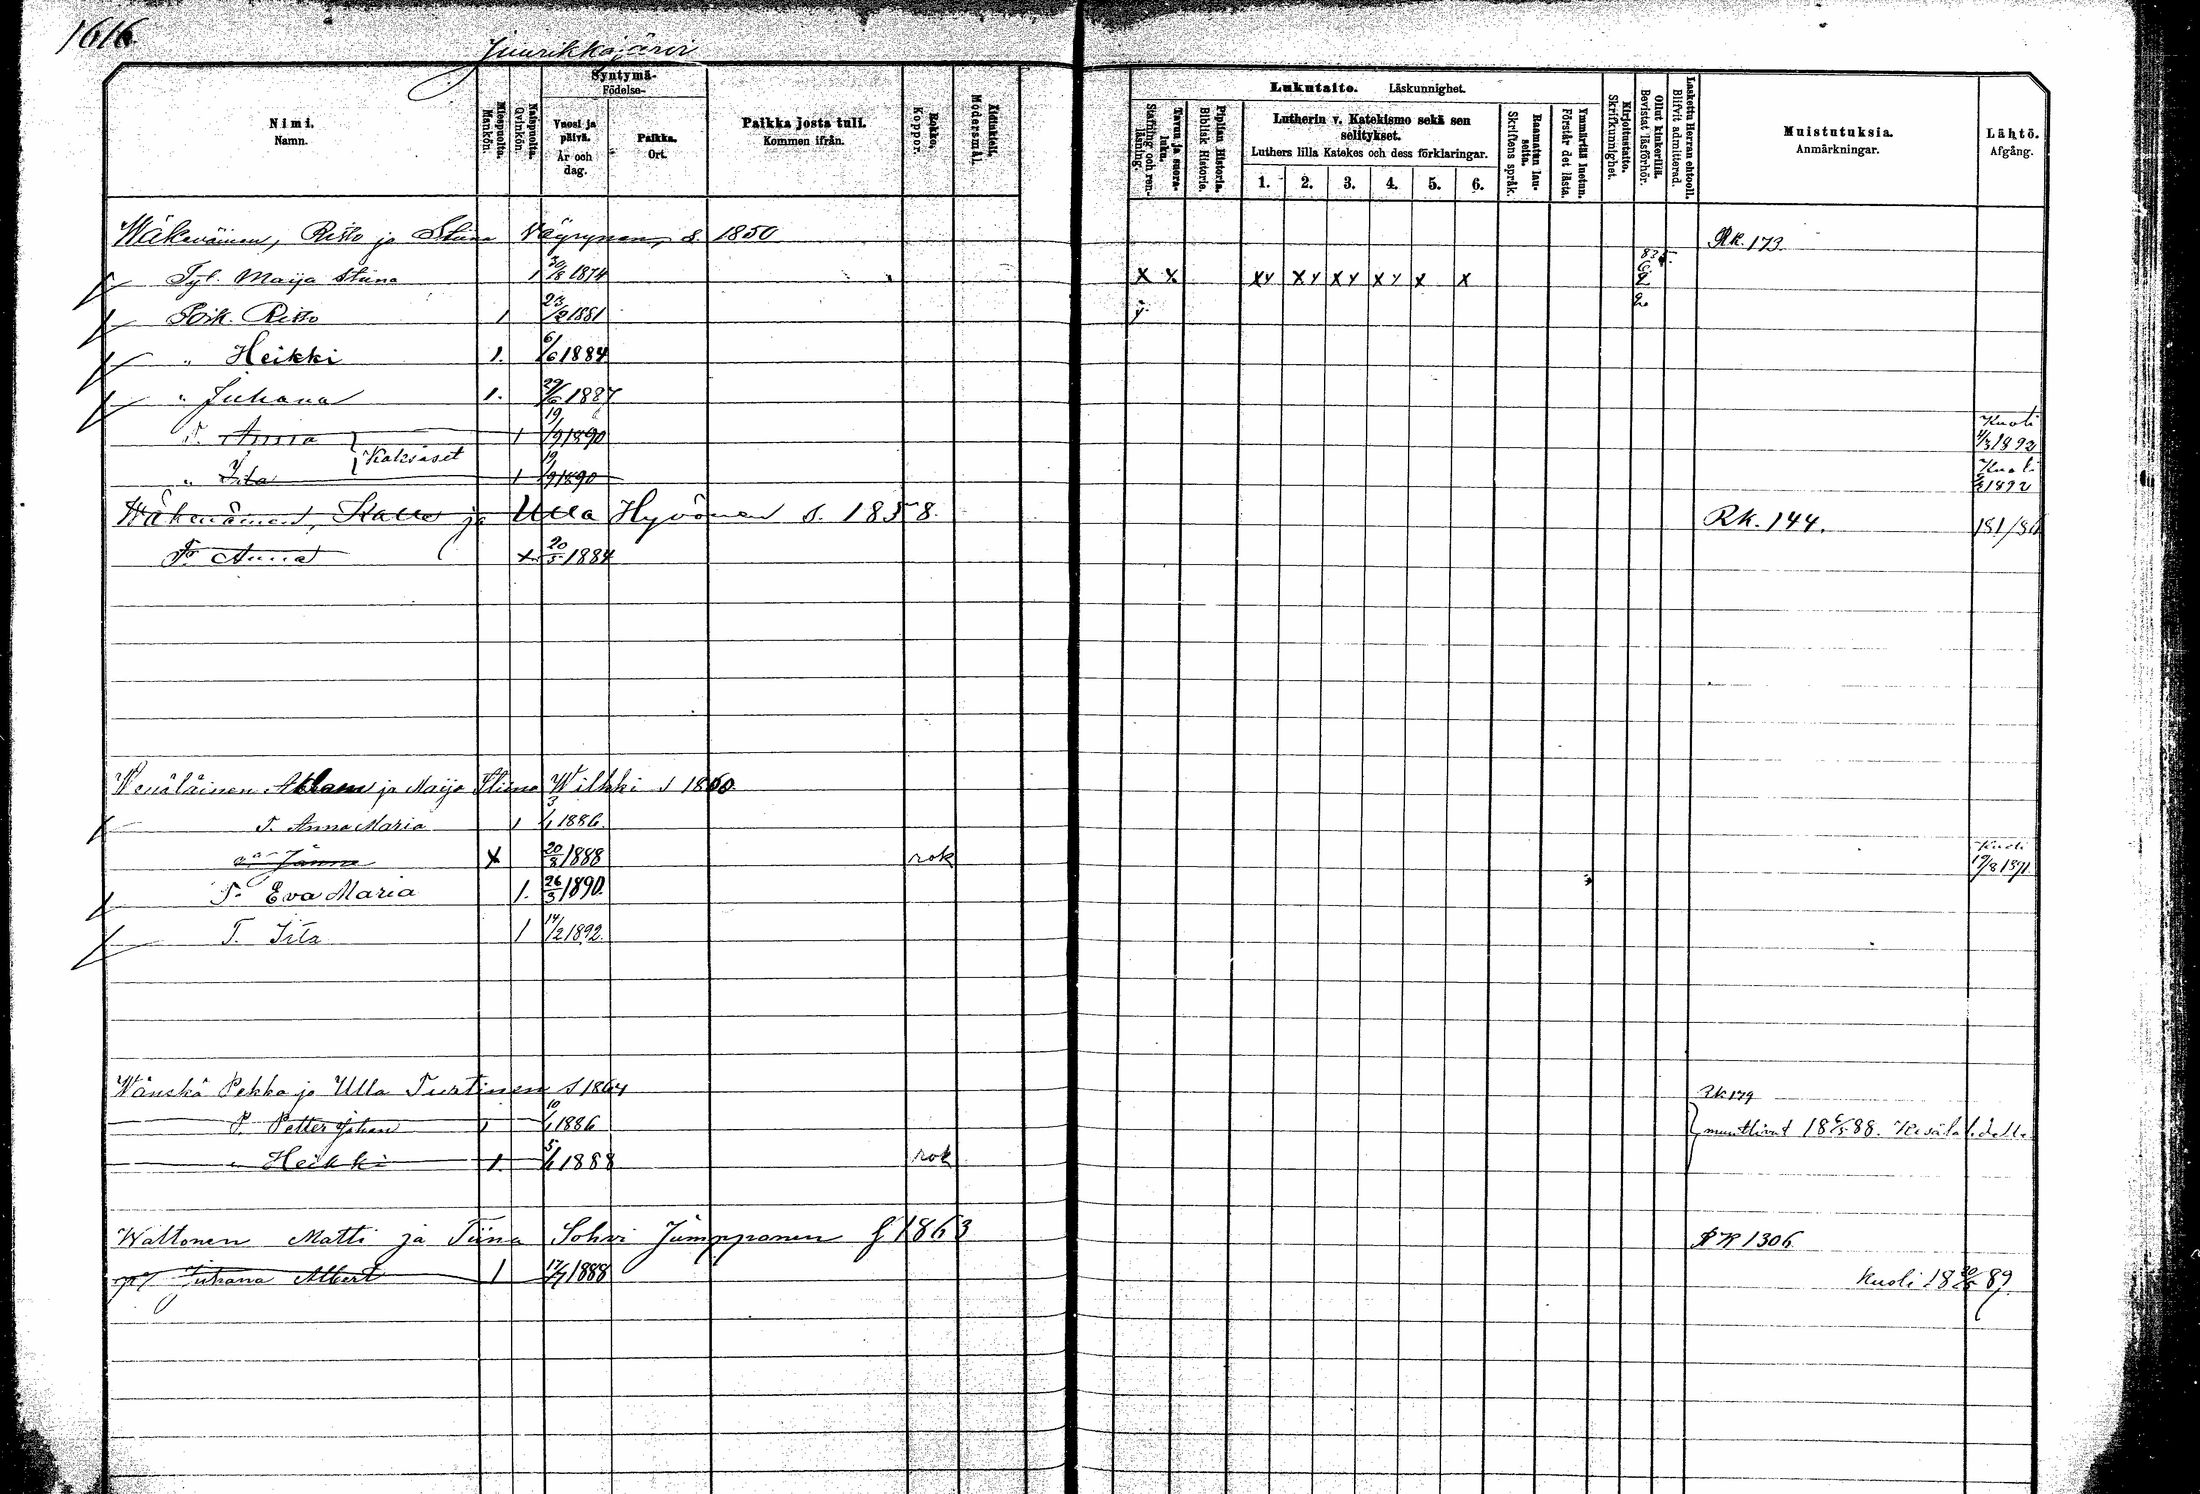 1616
Juurikkajärvi
Nimi. Namn.
Miespuolta. Mankön.
Naispuolta. Qvinkön.
Syntymä- Födelse-
Vuosi ja päivä. År och dag.
Paikka. Ort.
Paikka josta tuli. Kommen ifrån.
Rokko. Koppor.
Äidinkieli. Modersmål.
Lukutaito. Läskunnighet.
Tavun ja suora- luku. Stafning och ren- läsning.
Piplian Historia. Biblisk Historie.
Lutherin v. Katekismo sekä sen selitykset.
Luthers lilla Katekes och dess förklaringar.
1. 2. 3. 4. 5. 6.
Raamatun lau- seita. Skriftens språk.
Ymmärtää luetun. Förstår det lästa.
Kirjoitustaito. Skrifkunnighet.
Ollut kinkerillä. Bevistat läsförhör.
Laskettu Herran ehtooll. Blifvit admitterad.
Muistutuksia. Anmärkningar.
Lähtö. Afgång.
Wäkeväinen, Risto ja Stiina Väyrynen, s. 1850 Rk. 173
Tyt. Maija Stiina 1 30/8 1874 x x xy xy xy xy x x
Poik. Risto 1 23/2 1881 y
" Heikki 1. 6/6 1884
" Juhana 1. 29/6 1887
T. Anna 1 19/9 1890 Kuoli 4/3 1892
Kaksoset
" Iita 1 19/9 1890 Kuoli 1892
Wäkeväinen, Kalle ja Ulla Hyvönen s. 1858. Rk. 144. 181/80
T. Anna x 20/5 1884
Wenäläinen Adam ja Maija Stiina Wilkki s 1860
T. Anna Maria 1 3/1 1886.
Janne x 20/8 1888 rok Kuoli 19/8 1891
T. Eva Maria 1. 26/3 1890.
T. Iita 1 14/2 1892.
Wänskä Pekka ja Ulla Turtinen s 1864 Rk 179
P. Petter Johan 1 10/1 1886 muuttivat 18 6/5 88. Kesälahdelle
" Heikki 1 5/1 1888 rok
Waltonen Matti ja Tiina Sohvi Jumpponen f 1863 RK 1306
p. Juhana Albert 1 17/7 1888 Kuoli 18 20/5 89.